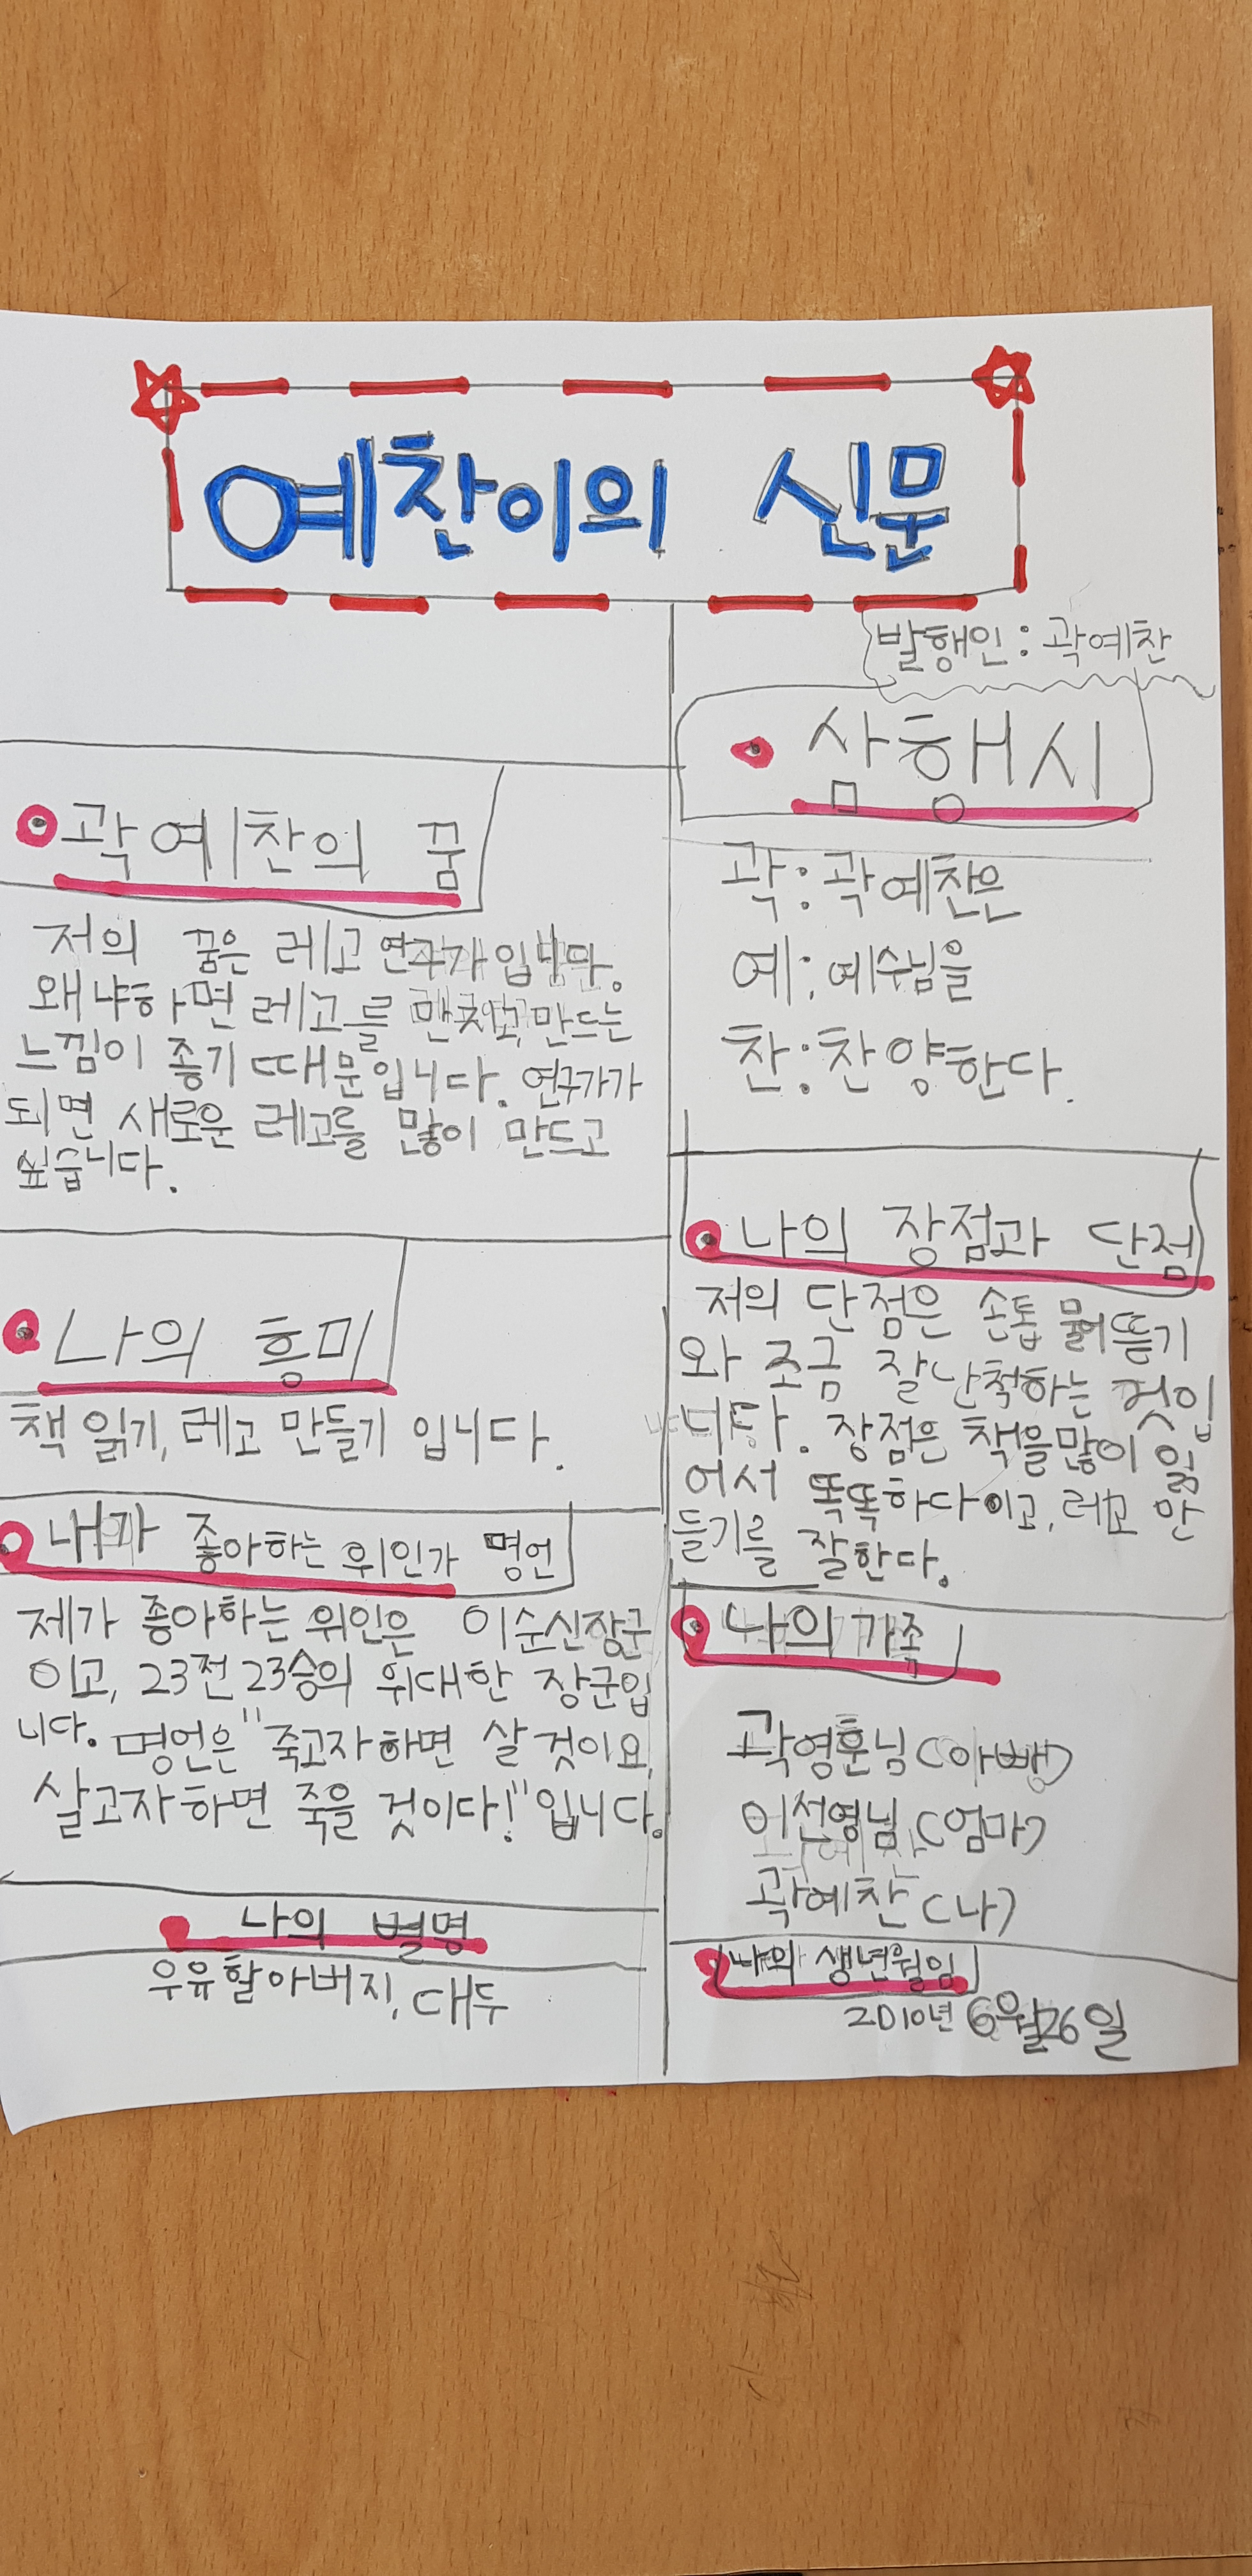 예찬이의 신문
발행인: 곽예찬
곽예찬의 꿈
저의 꿈은 레고 연구가입니다.
왜냐하면 레고를 만드는
느낌이 좋기 때문입니다. 연구가가
되면 새로운 레고를 많이 만드고
싶습니다.
나의 흥미
책 읽기, 레고 만들기 입니다.
내가 좋아하는 위인가 명언
제가 좋아하는 위인은 이순신장군
이고, 23전 23승의 위대한 장군입
니다. 명언은 "죽고자하면 살 것이요,
살고자하면 죽을 것이다!" 입니다.
나의 별명
우유할아버지, 대두
삼행시
곽: 곽예찬은
예: 예수님을
찬: 찬양한다.
나의 장점과 단점
저의 단점은 손톱 물어뜯기
와 조금 잘난척하는 것입
니다. 장점은 책을많이 읽
어서 똑똑하다이고, 레고 만
들기를 잘한다.
나의 가족
곽영훈님 (아빠)
이선영님 (엄마)
곽예찬 (나)
나의 생년월일
2010년 6월26일